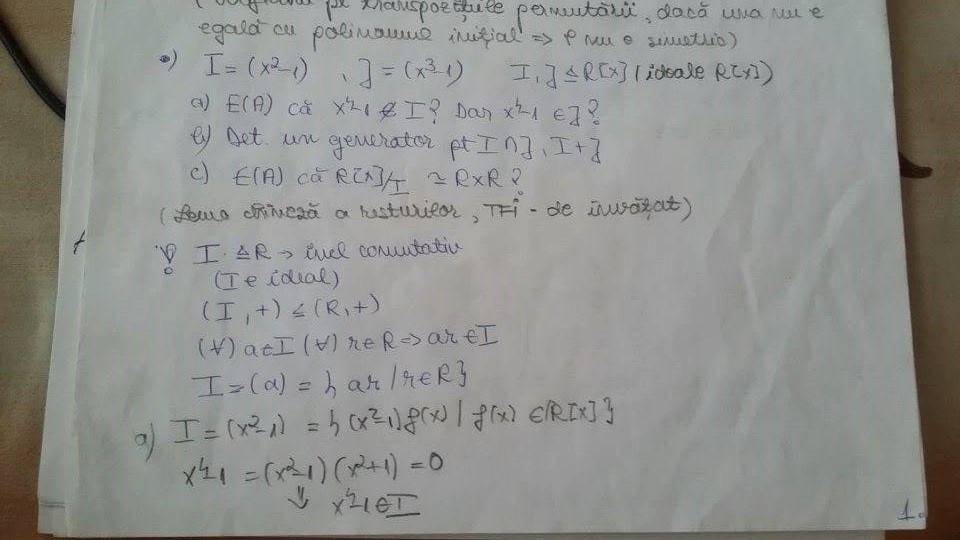 pe transpozițiile permutării, dacă una nu e
egală cu polinomul inițial => P nu e simetric)
•) I = (x²-1) , J = (x³-1) I, J ⊴ R[x] (ideale R[x])
a) E(A) că x⁴-1 ∉ I? Dar x⁴-1 ∈ J?
b) Det. un generator pt I ∩ J, I + J
c) E(A) că R[x]/I ≃ R×R?
(Lema chineză a resturilor, TFI - de învățat)
! I ⊴ R → inel comutativ
(I e ideal)
(I, +) ≤ (R, +)
(∀) a∈I (∀) r∈R => ar ∈ I
I = (a) = { ar / r∈R }
a) I = (x²-1) = { (x²-1) f(x) | f(x) ∈ R[x] }
x⁴-1 = (x²-1) (x²+1) = 0
⇓ x⁴-1 ∈ I
1.